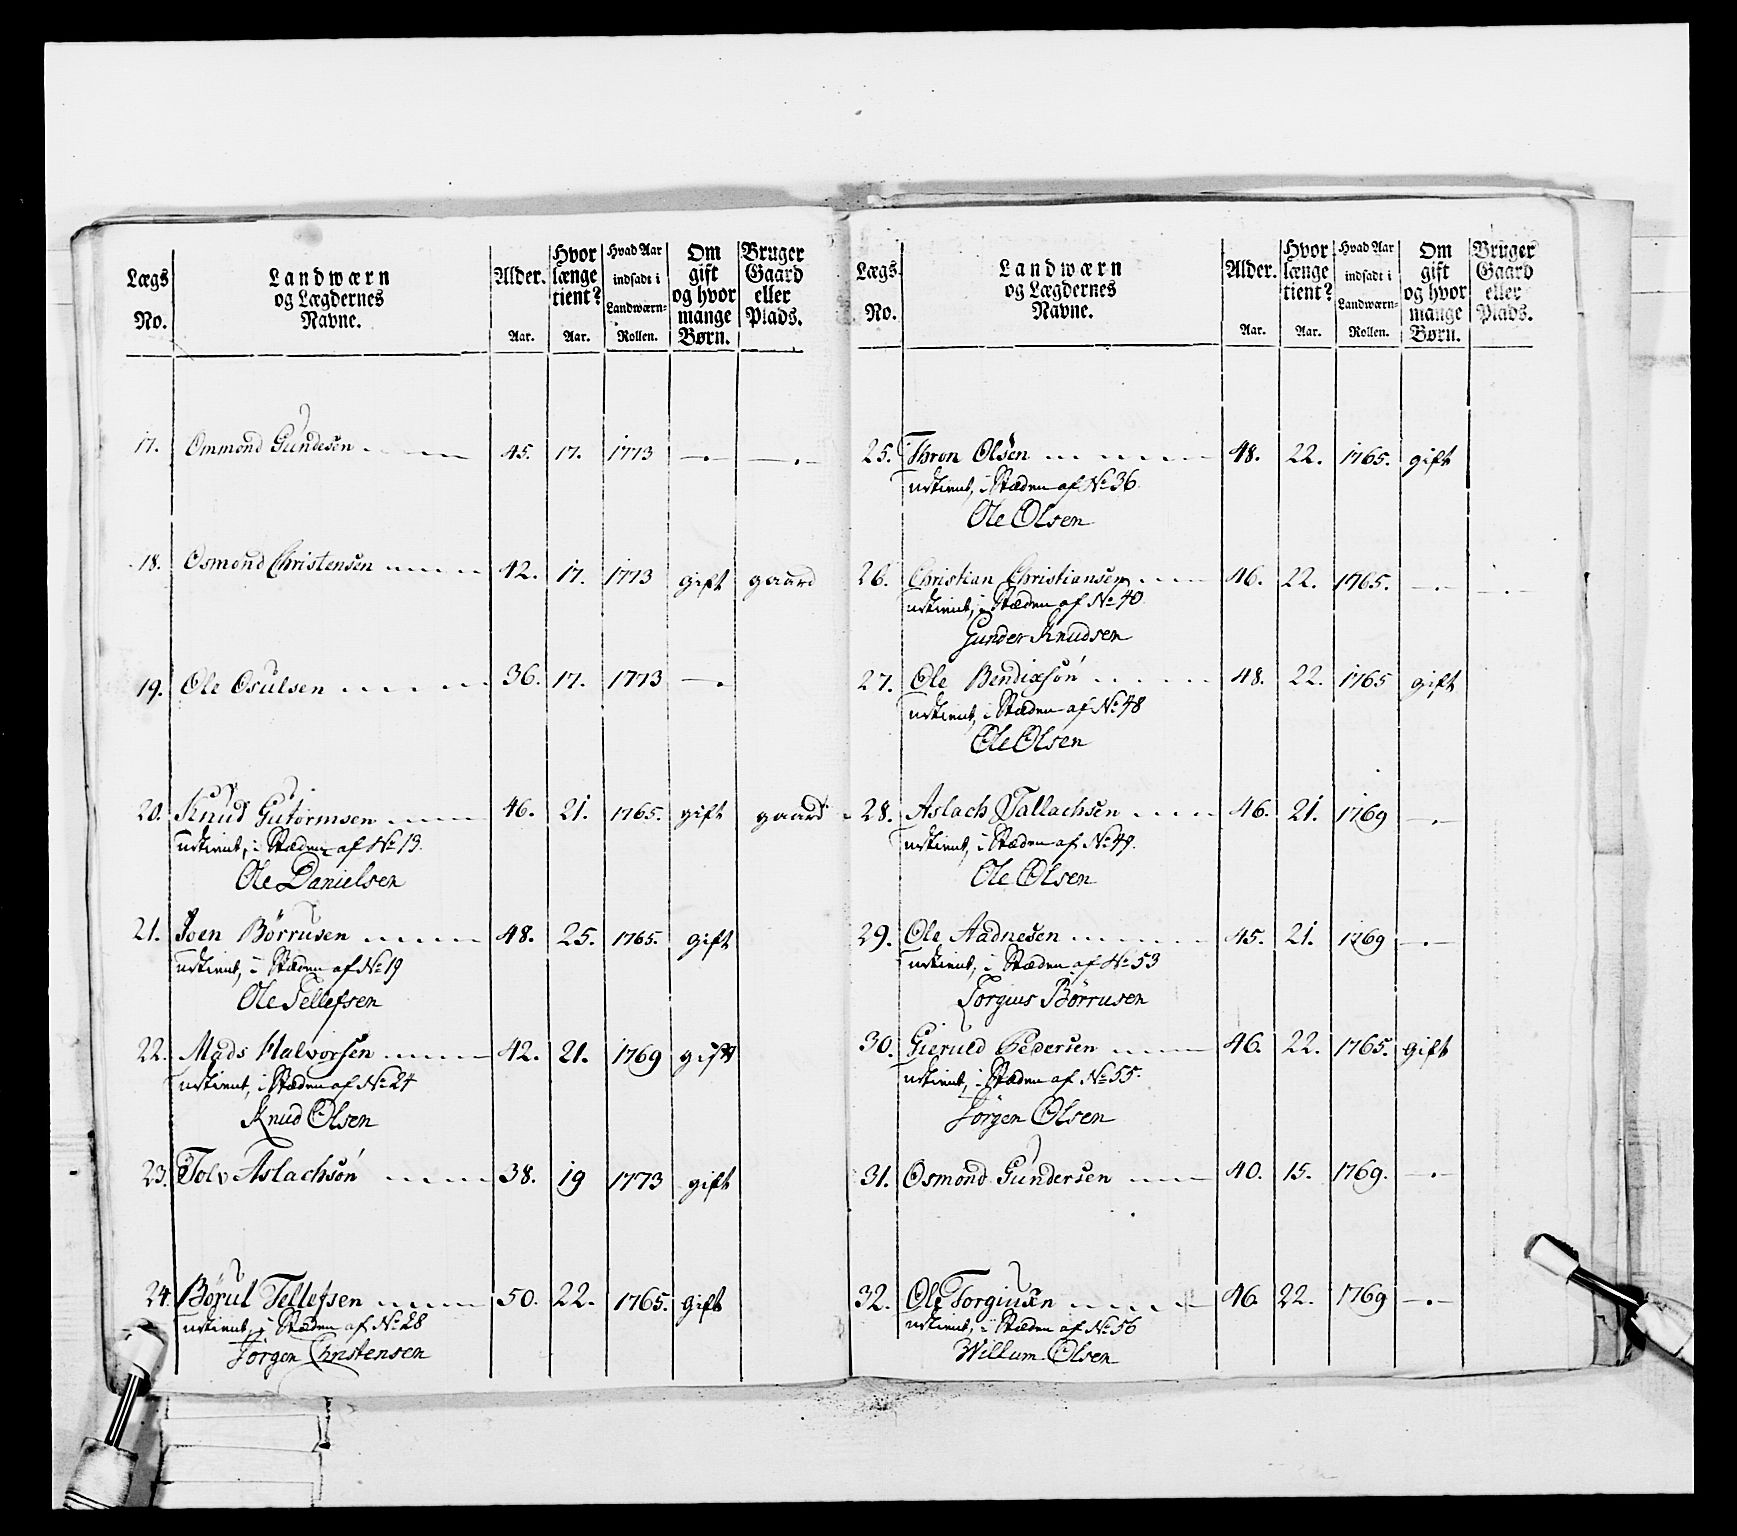 Lægs No. | Landwærn og Lægdernes Navne. | Alder. Aar. | Hvor længe tient? Aar. | Hvad Aar indsadt i Landwærn- Rollen. | Om gift og hvor mange Børn. | Bruger Gaard eller Plads.
17. Ommond Gundesen 45. 17. 1773 —.— —.—
18. Osmond Christensen 42. 17. 1773 gift gaard
19. Ole Osulsen 36. 17. 1773 —.
20. Knud Gutormsen 46. 21. 1765. gift gaard
udtient, i Stæden af No 13.
Ole Danielsen
21. Joen Börrusen 48. 25. 1765. gift
udtient, i Stæden af No 19
Ole Tellefsen
22. Mads Halvorsen 42. 21. 1769 gift
udtient, i Stæden af No 24
Knud Olsen
23. Tolv Aslachsön 38. 19 1773 gift
24. Börul Tellefsen 50. 22. 1765. gift
udtient, i Stæden af No 28
Jörgen Christensen
Lægs. No. | Landwærn og Lægdernes Navne. | Alder. Aar. | Hvor længe tient? Aar. | Hvad Aar indsadt i Landwærn- Rollen. | Om gift og hvor mange Børn. | Bruger Gaard eller Plads.
25. Thron Olsen 48. 22. 1765. gift
udtient, i Stæden af No 36.
Ole Olsen
26. Christian Christiansen 46. 22. 1765. —.— —.—
udtient, i Stæden af No 40.
Gunder Knudsen
27. Ole Bendixsön 48. 22. 1765 gift
udtient, i Stæden af No 48
Ole Olsen
28. Aslach Tallachsen 46. 21. 1769 —.—
udtient, i Stæden af No 49.
Ole Olsen
29. Ole Aadnesen 45. 21. 1769 —.—
udtient, i Stæden af No 53
Torgius Börrusen
30. Gieruld Pedersen 46. 22. 1765. gift
udtient, i Stæden af No 55.
Jörgen Olsen
31. Osmond Gundersen 40. 15. 1769. —.—
32. Ole Torgiusen 46. 22. 1769 —.—
udtient, i Stæden af No 56
Willum Olsen